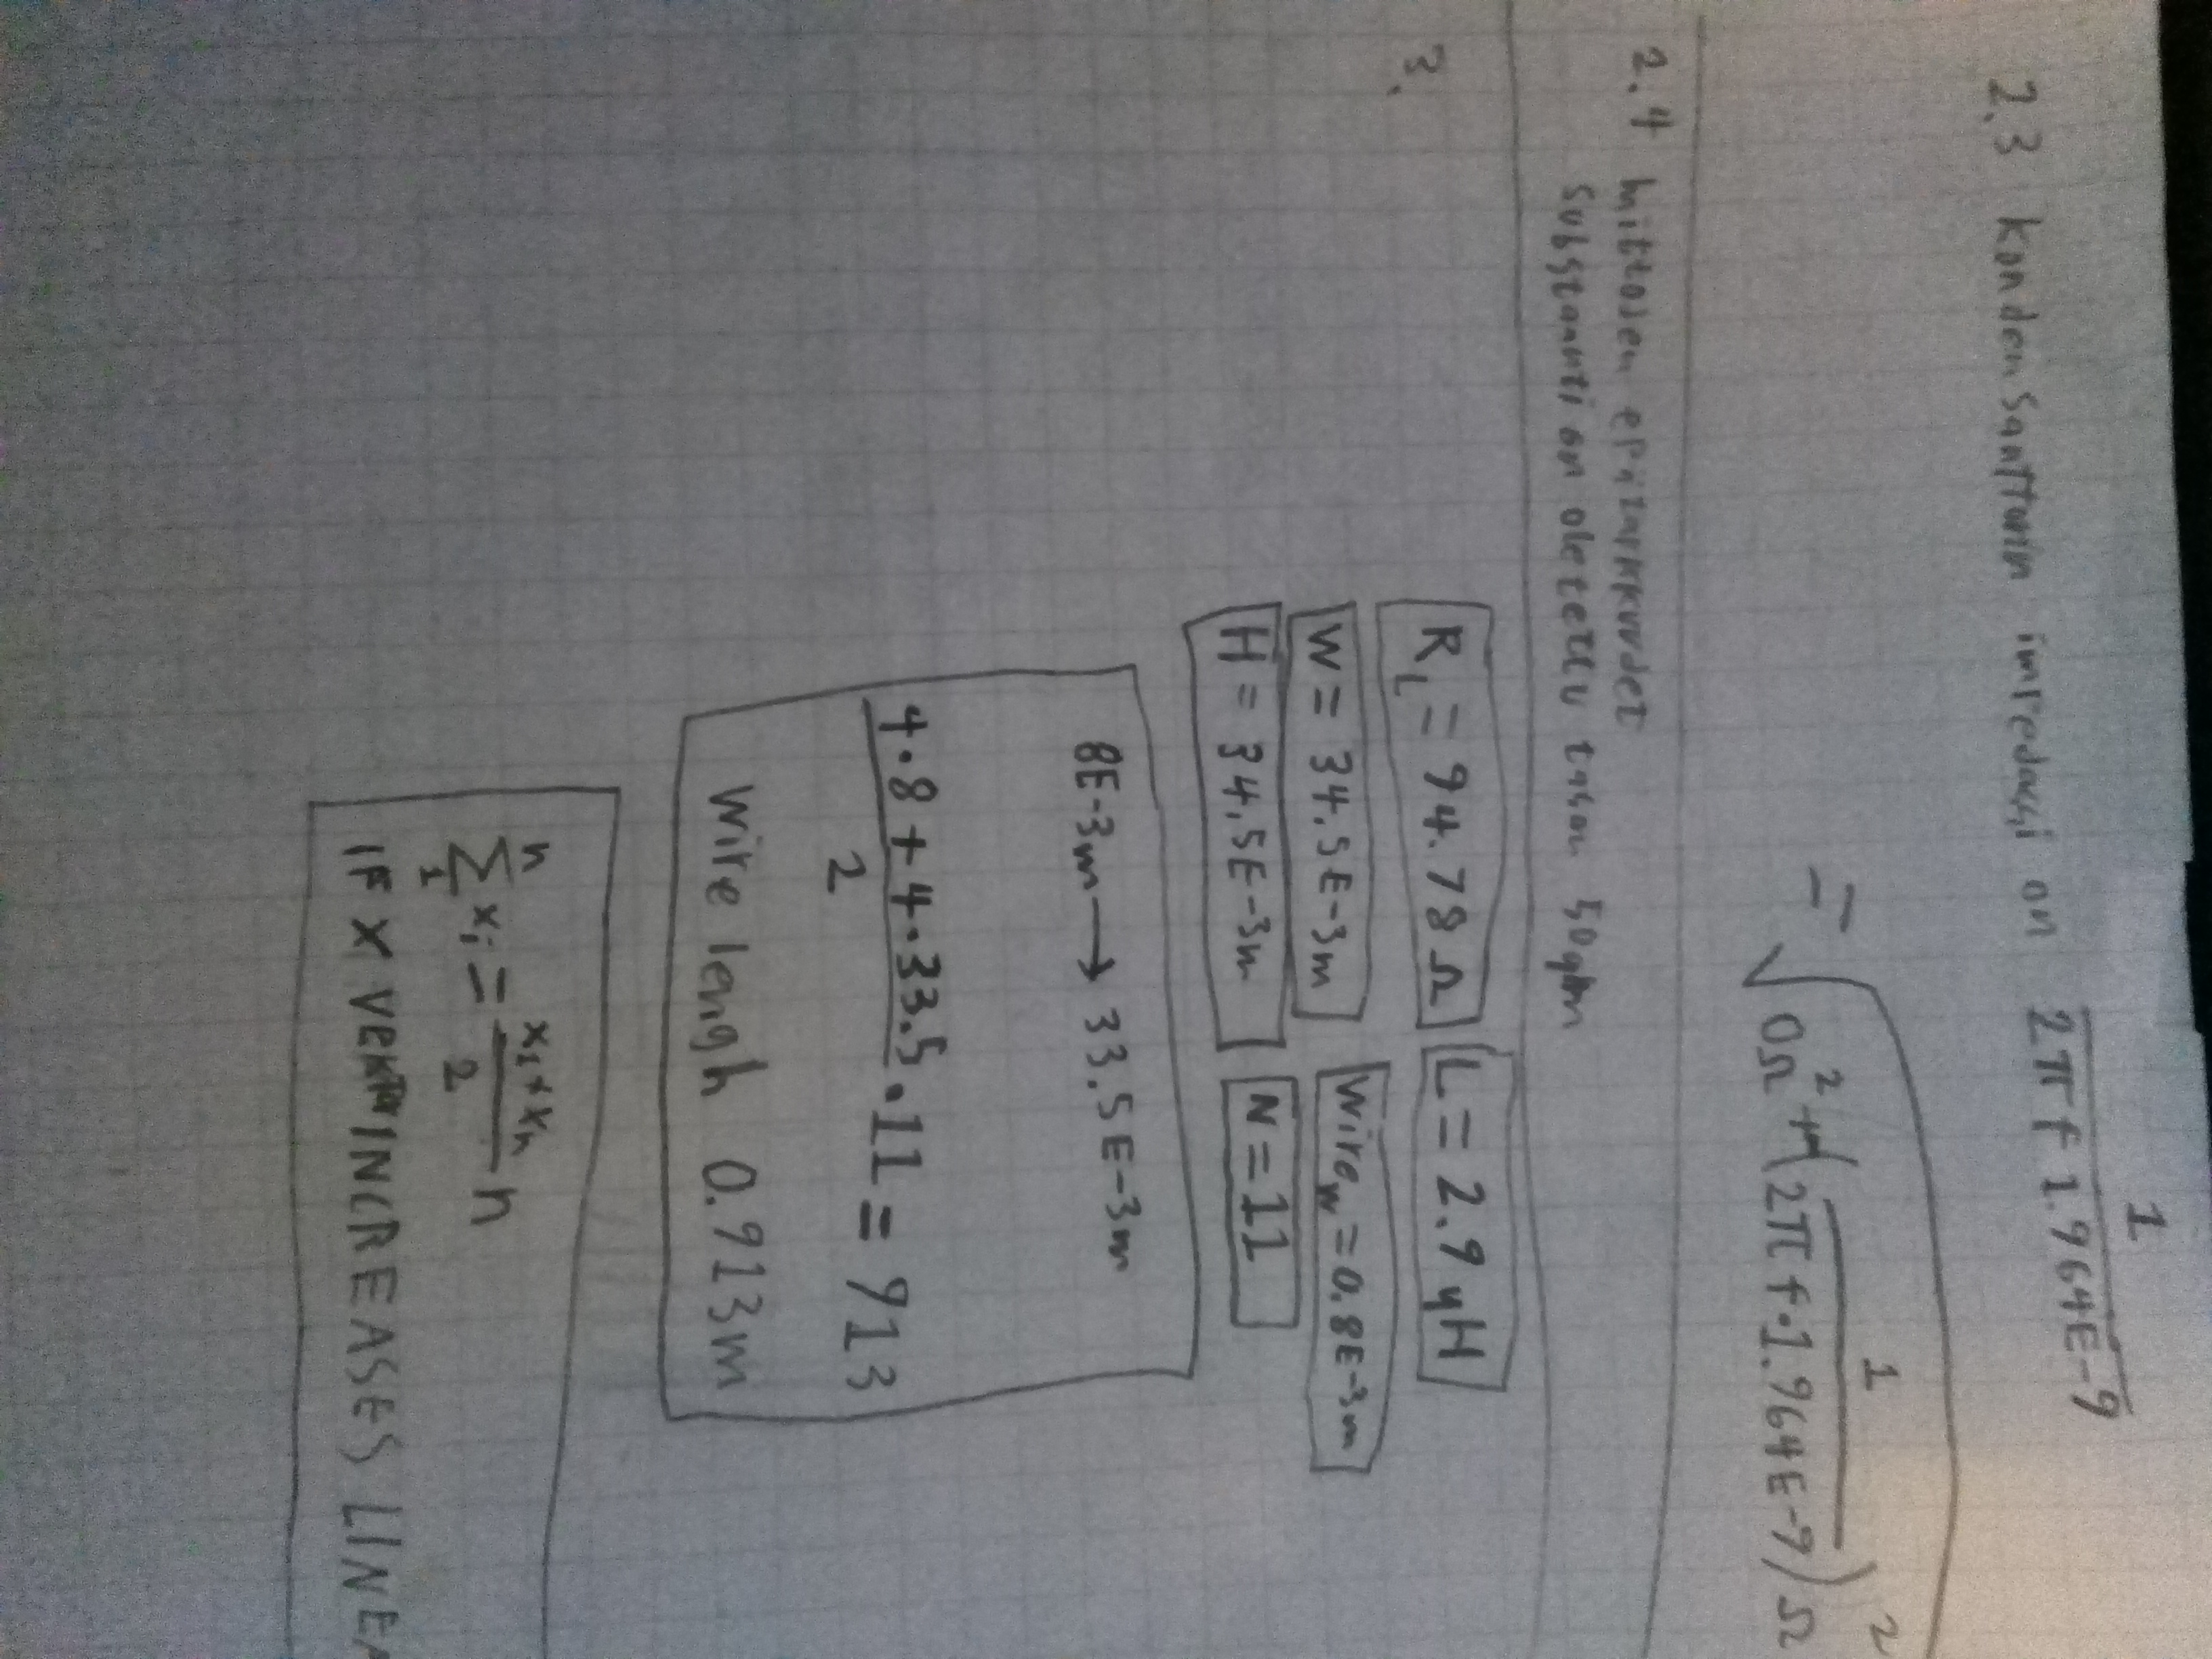 2.3 kondensaattorin impedassi on 1 / 2π f 1.964E-9
= √(0Ω² + (1 / 2π f·1.964E-9)² Ω
2.4 mittojen epätarkkuudet
Substraatti on oletettu tasan 50
3.
R_L = 94.78 Ω L = 2.9 yH
W = 34.5E-3m Wire_w = 0.8E-3m
H = 34.5E-3m N = 11
8E-3m → 33.5E-3m
(4·8 + 4·33.5) / 2 ·11 = 913
wire lengh 0.913m
n ∑ 1 xᵢ = (x₁ + xₙ) / 2 n
IF X VEKTOR INCREASES LINEA